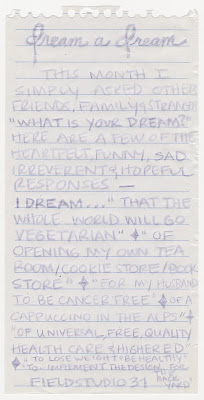 Dream a Dream
THIS MONTH I
SIMPLY ASKED OTHER
FRIENDS, FAMILY & STRANGERS
"WHAT IS YOUR DREAM?"
HERE ARE A FEW OF THE
HEARTFELT, FUNNY, SAD
IRREVERENT & HOPEFUL
RESPONSES —
I DREAM..." THAT THE
WHOLE WORLD WILL GO
VEGETARIAN" ♦ "OF
OPENING MY OWN TEA
ROOM/COOKIE STORE/BOOK
STORE" ♦ "FOR MY HUSBAND
TO BE CANCER FREE" ♦ "OF A
CAPPUCCINO IN THE ALPS" ♦
"OF UNIVERSAL, FREE, QUALITY
HEALTH CARE & HIGHER ED."
♦ "TO LOSE WEIGHT & BE HEALTHY"
♦ "TO IMPLEMENT THE DESIGN FOR
THE BACK YARD"
FIELDSTUDIO 31